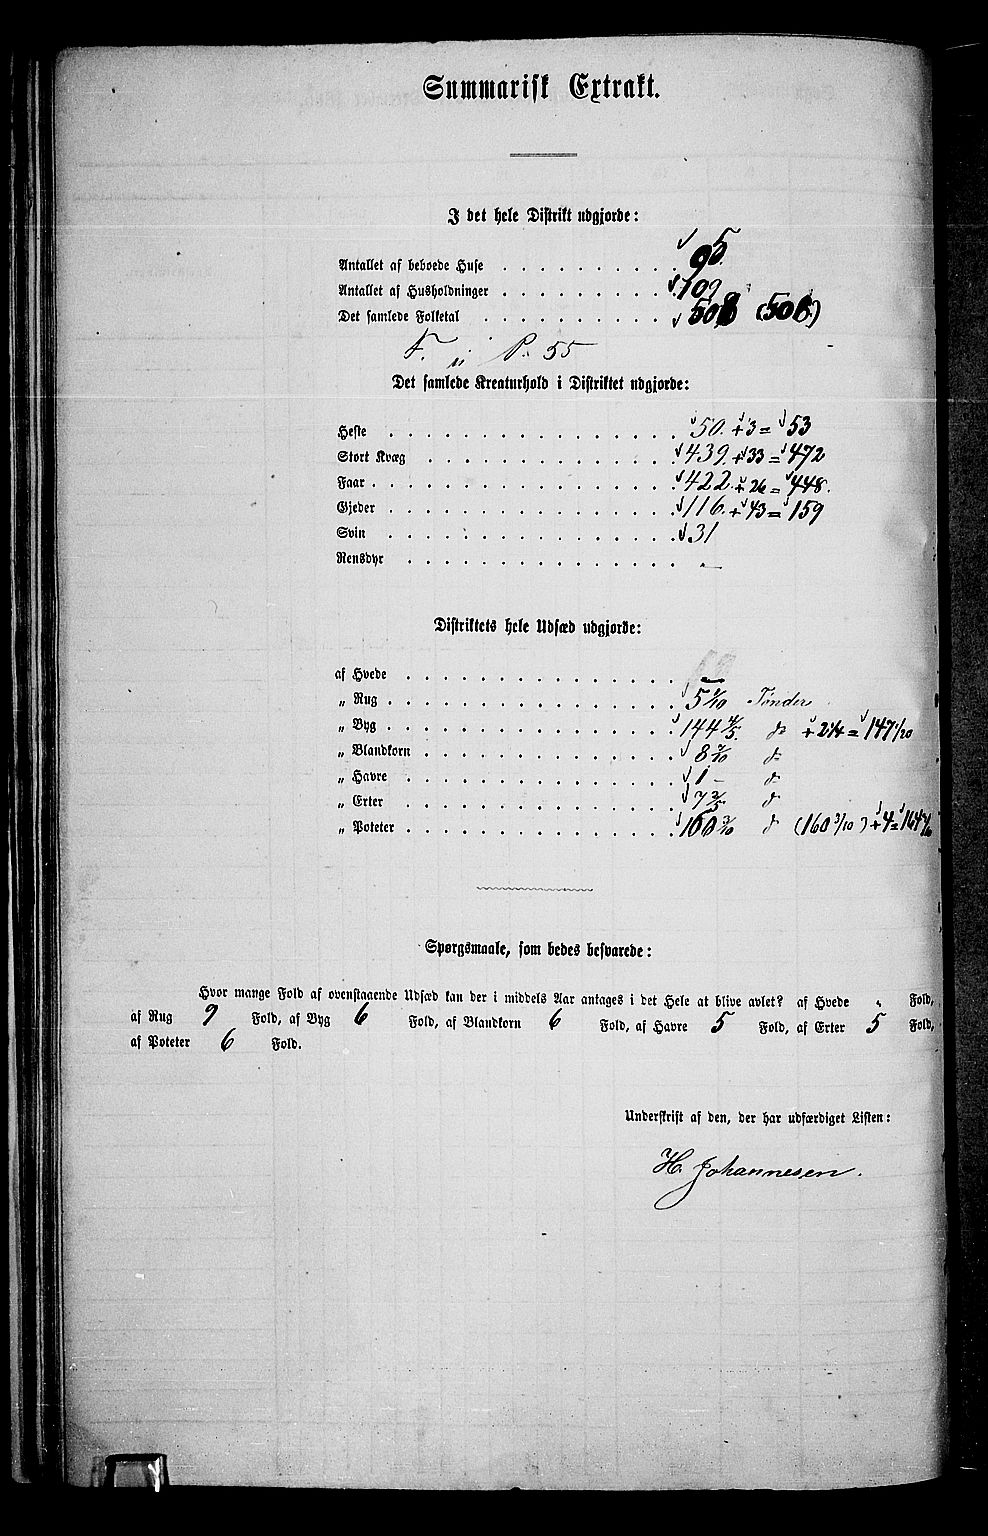 Summarisk Extrakt.
I det hele Distrikt udgjorde:
Antallet af beboede Huse . . . . . . . 95.
Antallet af Husholdninger . . . . . . . 109
Det samlede Folketal . . . . . . . 508 (508)
F. P. 55
Det samlede Kreaturhold i Distriktet udgjorde:
Heste . . . . . . . 50. + 3 = 53
Stort Kvæg . . . . . . . 439. + 33 = 472
Faar . . . . . . . 422. + 26 = 448.
Gjeder . . . . . . . 116. + 43 = 159
Svin . . . . . . . 31
Rensdyr . . . . . . . —
Distriktets hele Udsæd udgjorde:
af Hvede . . . . . . . —
„ Rug . . . . . . . Tønder
„ Byg . . . . . . . 144 4/5 do + 2 1/4 = 147 1/20
„ Blandkorn . . . . . . . do
„ Havre . . . . . . . 1 – do
„ Erter . . . . . . . 7 2/5 do
„ Poteter . . . . . . . 160 3/10 do (160 3/10) + 4 =
Spørgsmaale, som bedes besvarede:
Hvor mange Fold af ovenstaaende Udsæd kan der i middels Aar antages i det Hele at blive avlet? af Hvede „ Fold,
af Rug 9 Fold, af Byg 6 Fold, af Blandkorn 6 Fold, af Havre 5 Fold, af Erter 5 Fold,
af Poteter 6 Fold.
Underskrift af den, der har udfærdiget Listen:
H. Johannesen.